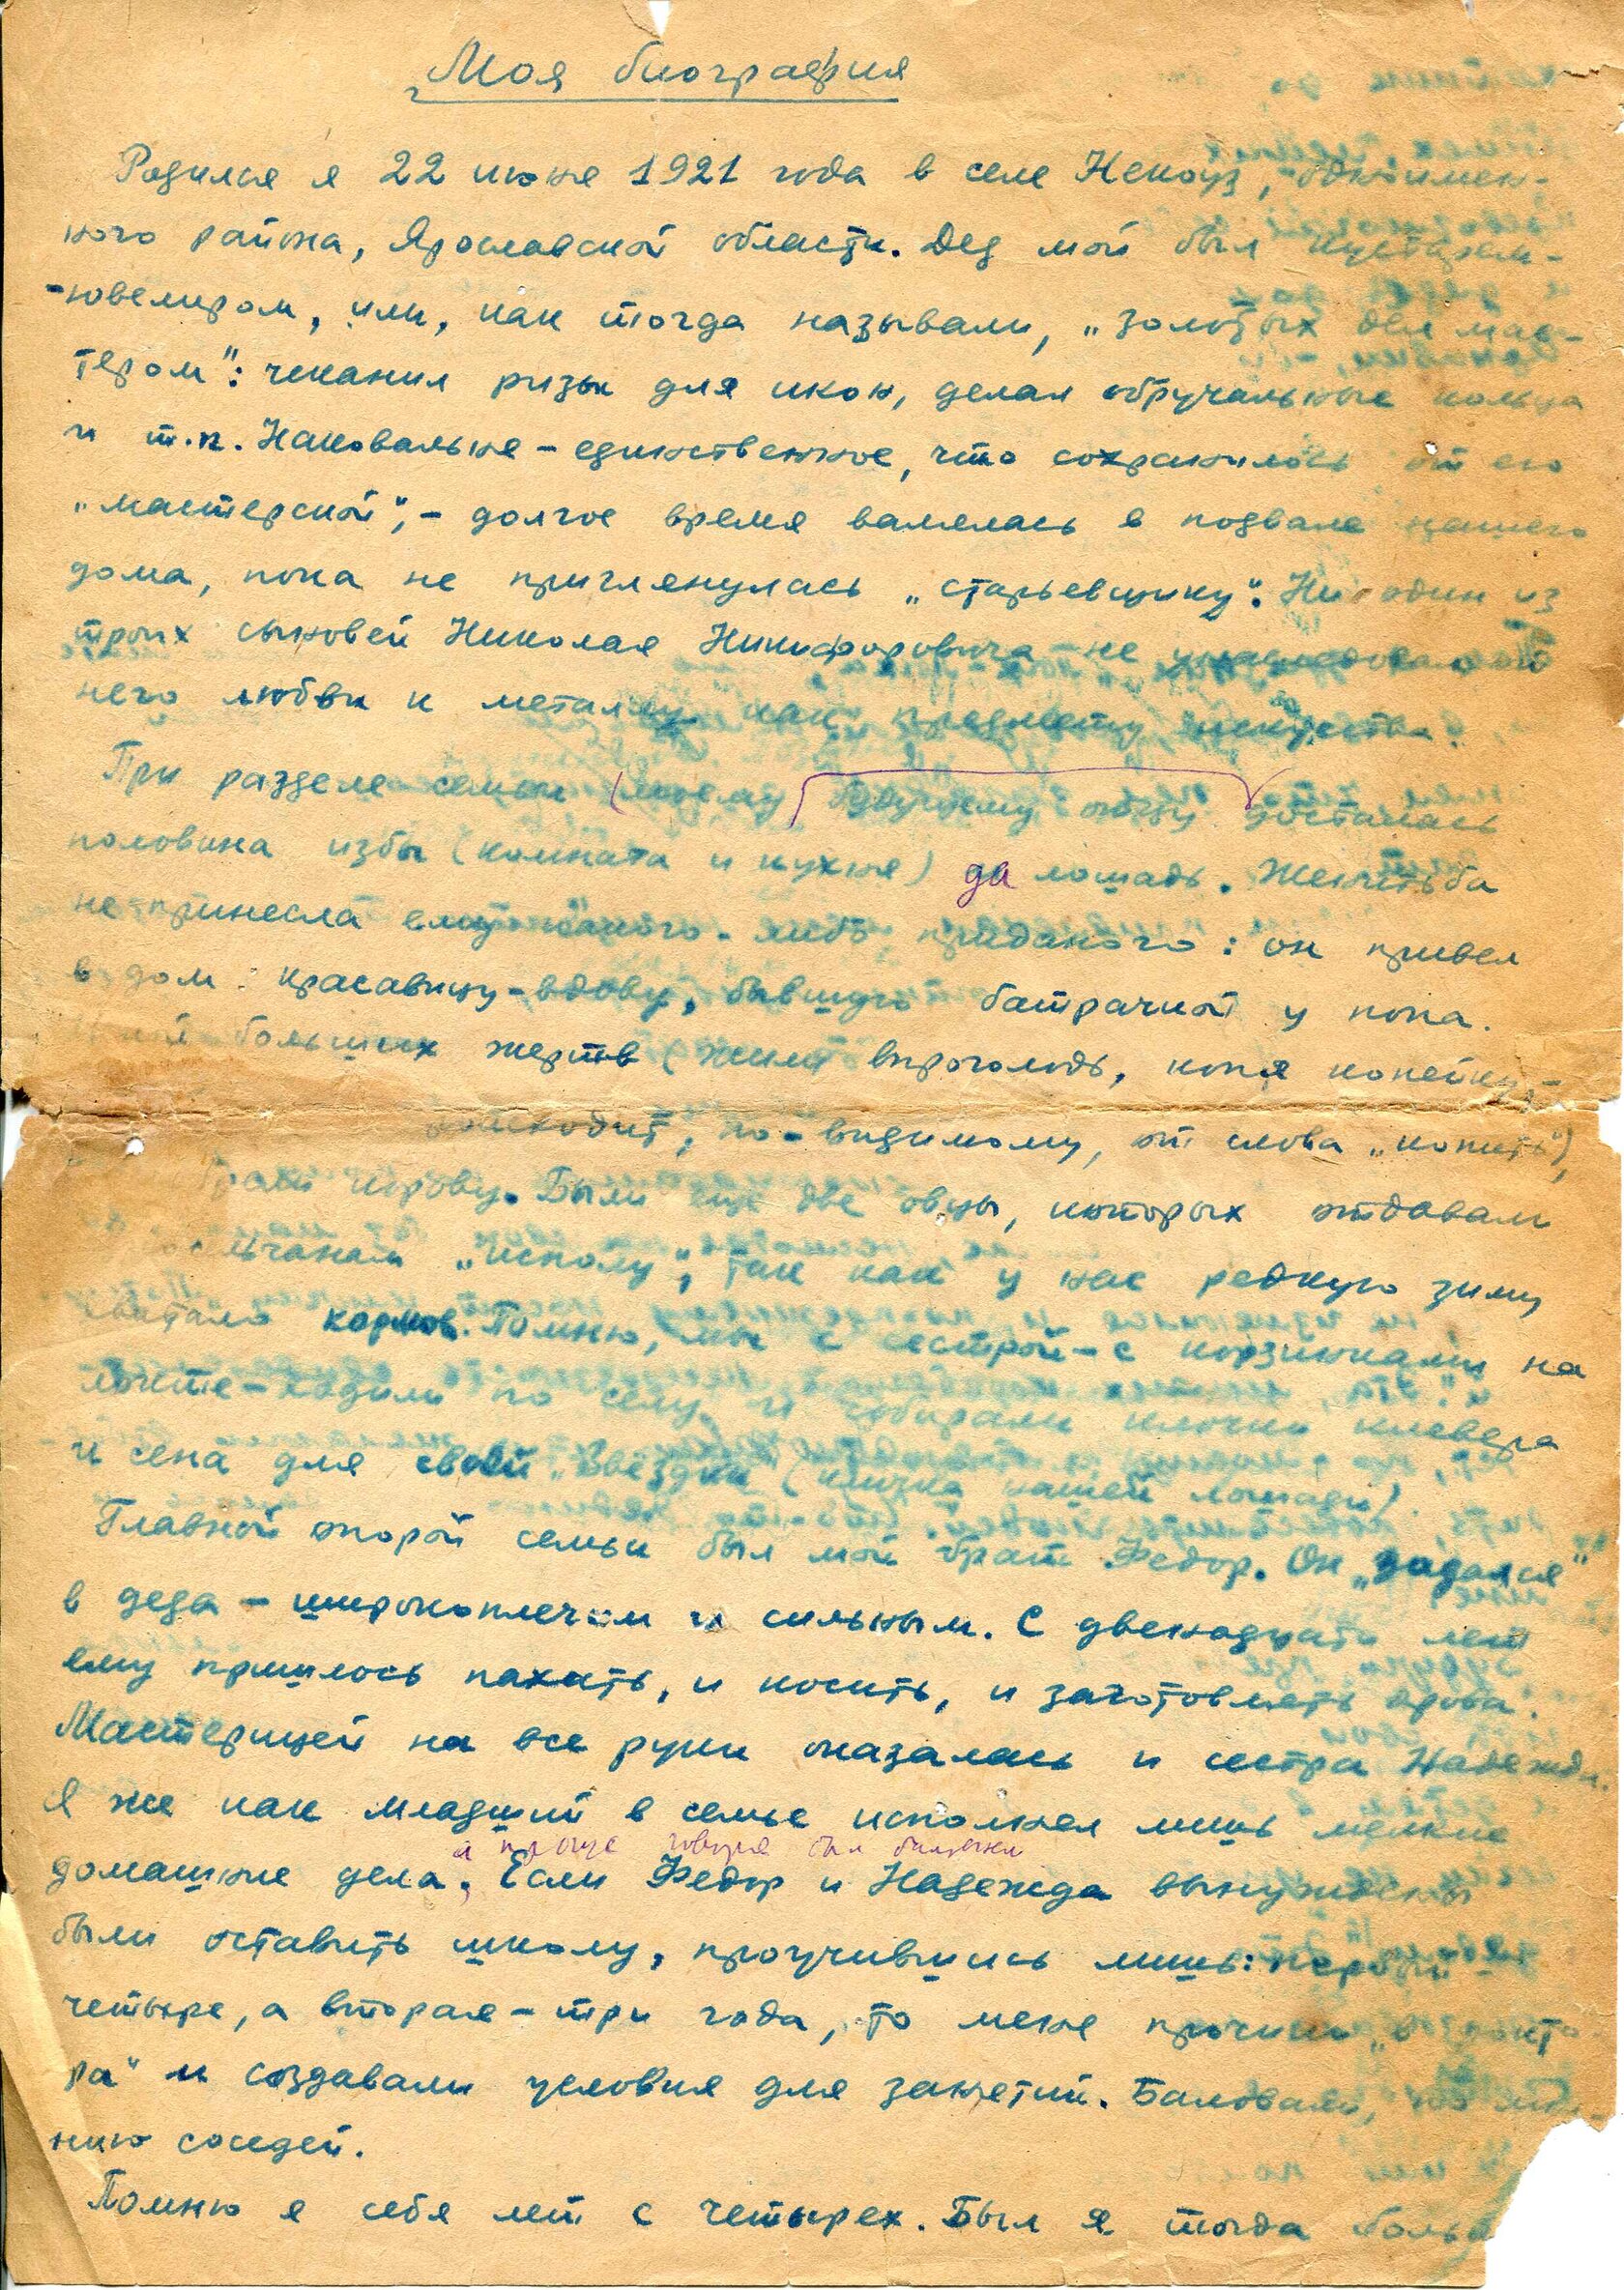 Моя биография
Родился я 22 июня 1921 года в селе Некоуз, одноимен-
ного района, Ярославской области. Дед мой был кустарем-
-ювелиром, или, как тогда называли, „золотых дел мас-
тером": чеканил ризы для икон, делал обручальные кольца
и т.п. Наковальня – единственное, что сохранилось от его
„мастерской", – долгое время валялась в подвале нашего
дома, пока не приглянулась „старьевщику". Ни один из
троих сыновей Николая Никифоровича не унаследовал от
него любви к металлу как предмету искусства.
При разделе семьи (моему будущему отцу досталась
половина избы (комната и кухня) да лошадь. Женитьба
не принесла ему какого-либо приданого: он привел
в дом красавицу-вдову, бывшую батрачкой у попа.
больших жертв (жили впроголодь, копя копейку, –
по-видимому, от слова „копить"),
корову. Были еще две овцы, которых отдавали
„исполу", так как у нас редкую зиму
хватало кормов. Помню, мы с сестрой – с корзинками на
локте – ходили по селу и собирали клочки клевера
и сена для своей „Звездки" (кличка нашей лошади).
Главной опорой семьи был мой брат Федор. Он „задался"
в деда – широкоплечим и сильным. С двенадцати лет
ему пришлось пахать, и косить, и заготовлять дрова.
Мастерицей на все руки оказалась и сестра Надежда.
Я же как младший в семье исполнял лишь мелкие
а проще говоря был
домашние дела, Если Федор и Надежда вынуждены
были оставить школу, проучившись лишь: первый –
четыре, а вторая – три года, то меня прочили „в докто-
ра" и создавали условия для занятий. Баловали, по мне-
нию соседей.
Помню я себя лет с четырех. Был я тогда